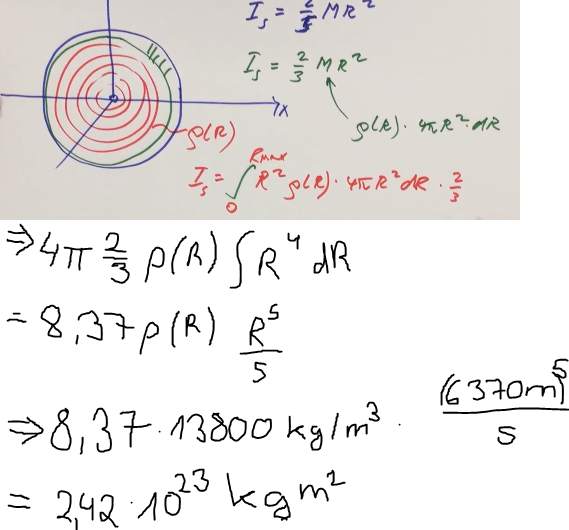 I_s = 2/5 MR²
I_s = 2/3 MR²
x
ρ(R) · 4πR² · dR
ρ(R)
I_s = ∫₀^{Rmax} R² ρ(R) · 4πR² dR · 2/3
⇒ 4π 2/3 ρ(R) ∫ R⁴ dR
= 8,37 ρ(R) R⁵/5
⇒ 8,37 · 13800 kg/m³ · (6370m)⁵/5
= 2,42 · 10²³ kg m²